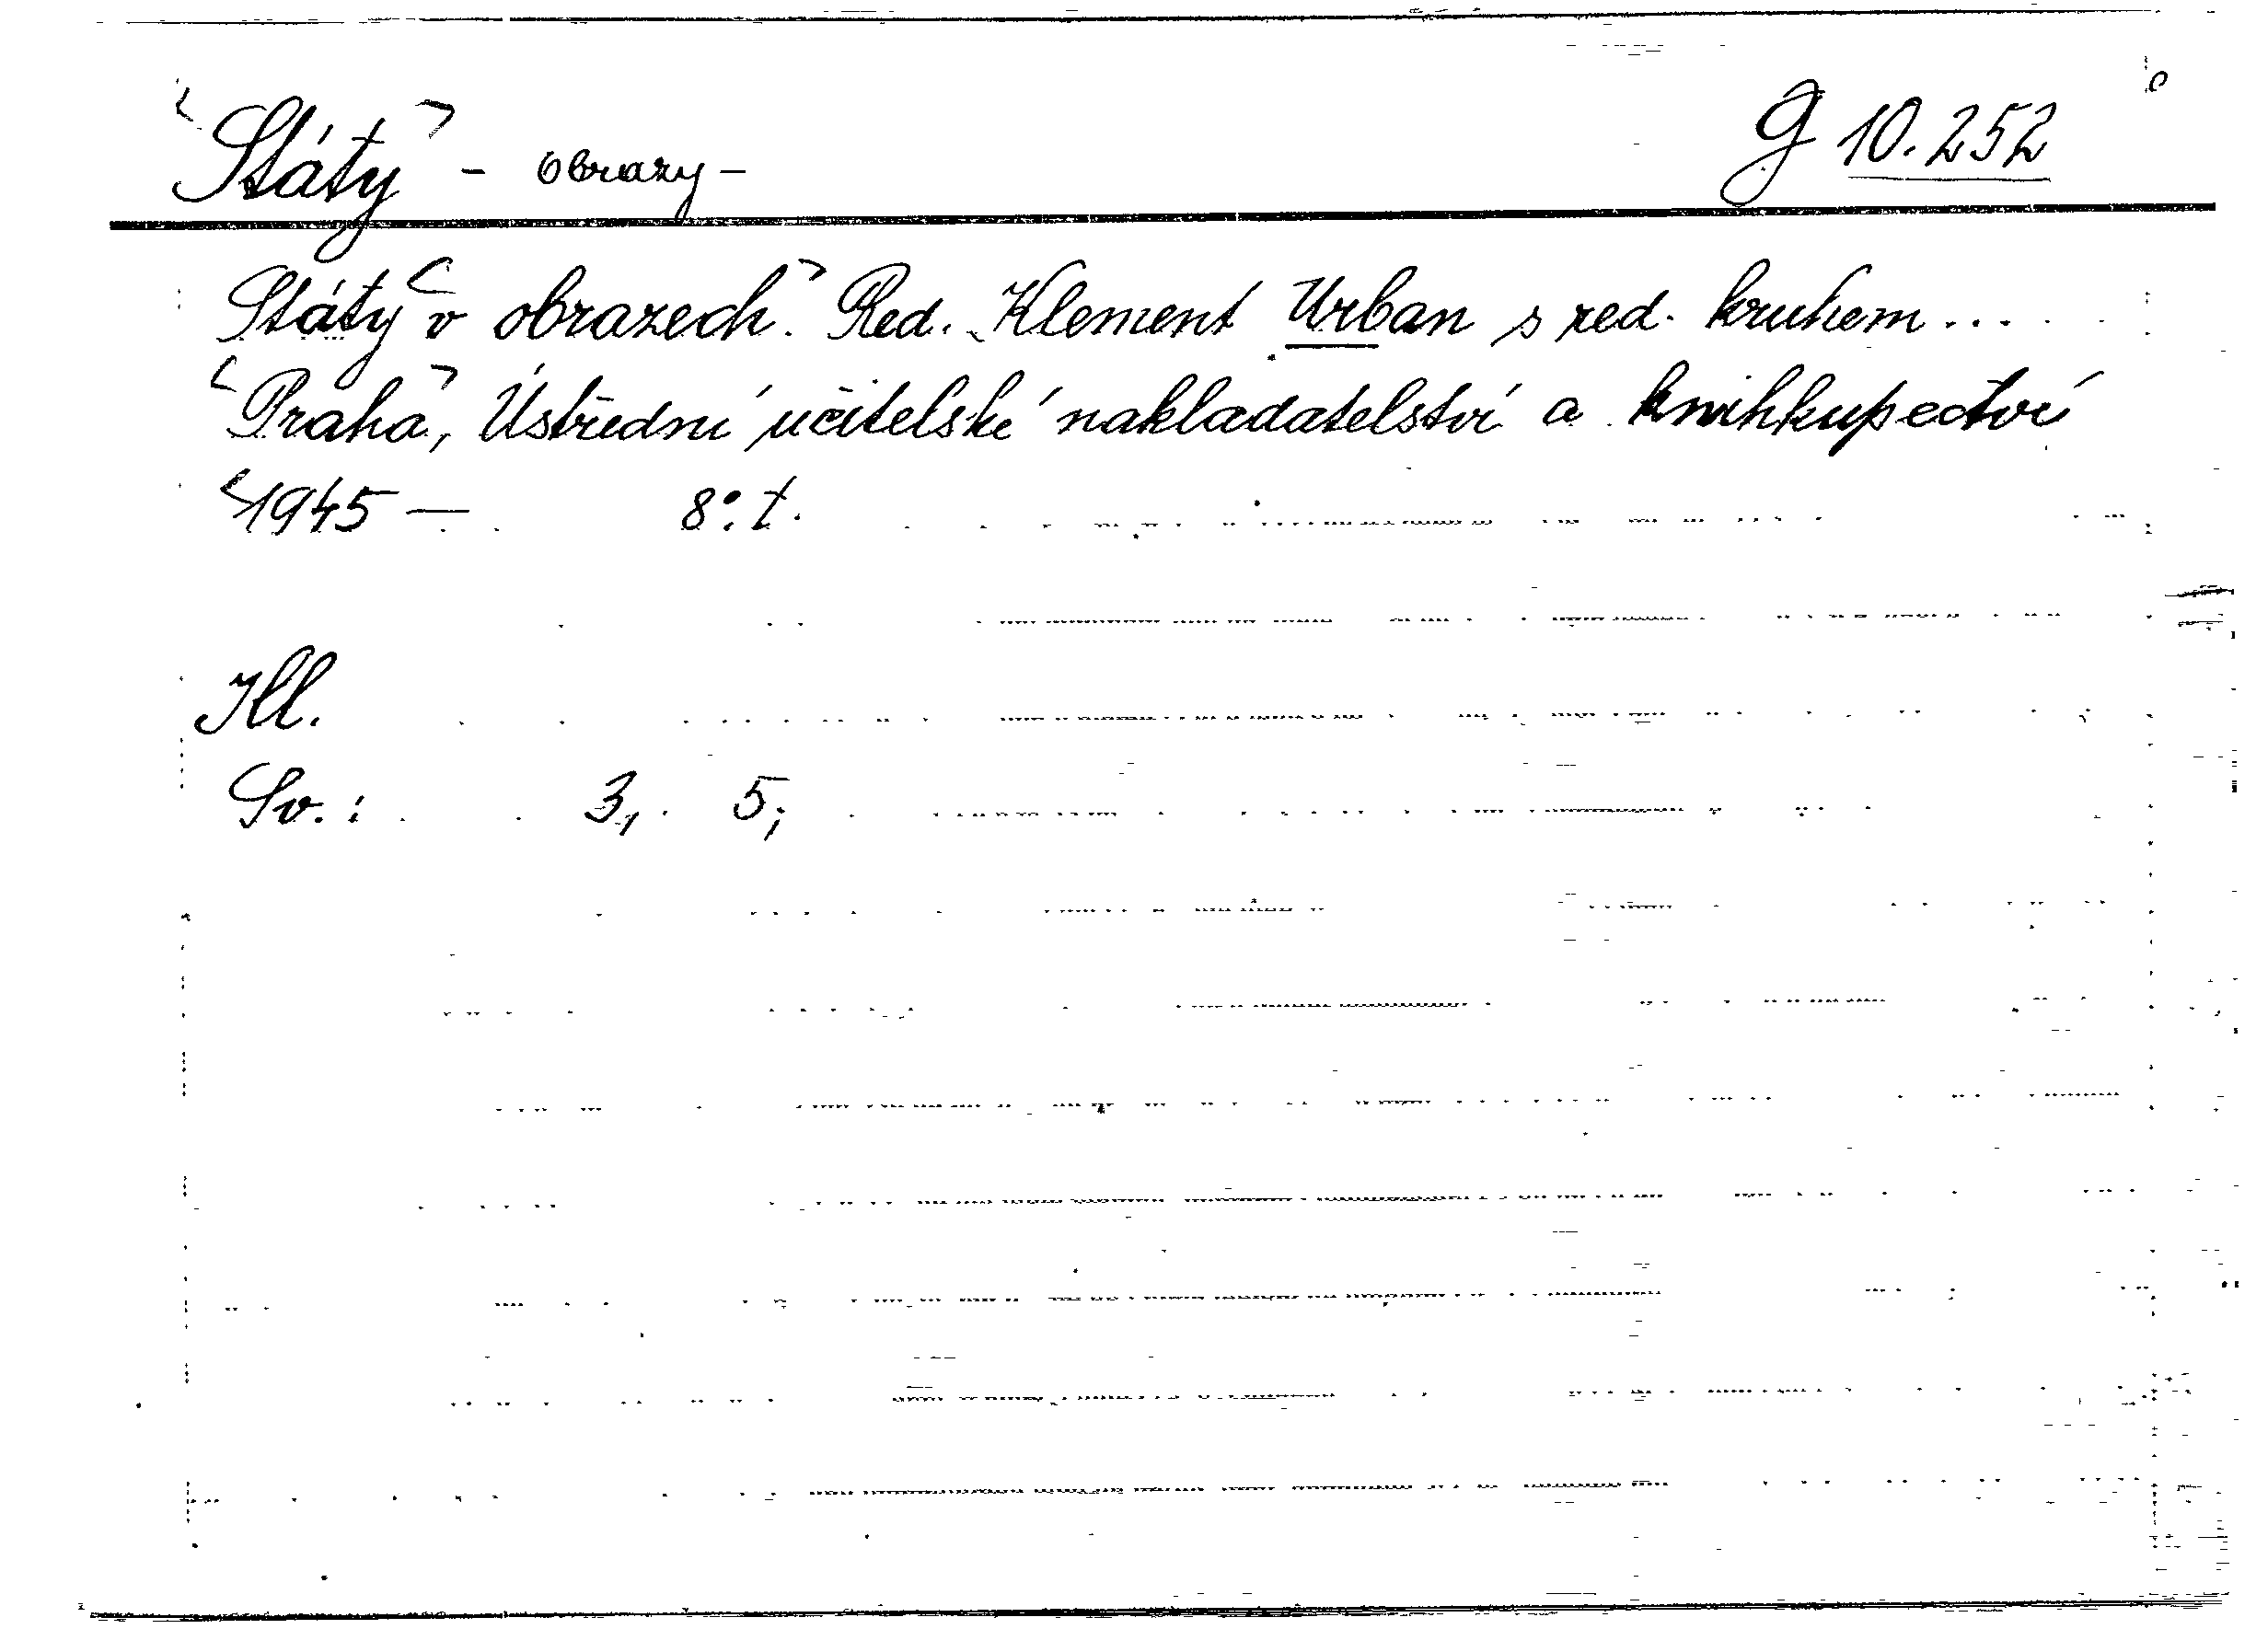 <Státy> - obrazy - G 10.252
Státy <v obrazech.> Red. Klement Urban s red. kruhem ...
<Praha>, Ústřední učitelské nakladatelství a knihkupectví
<1945 — 8°. t.
Ill.
Sv.: 3, 5,